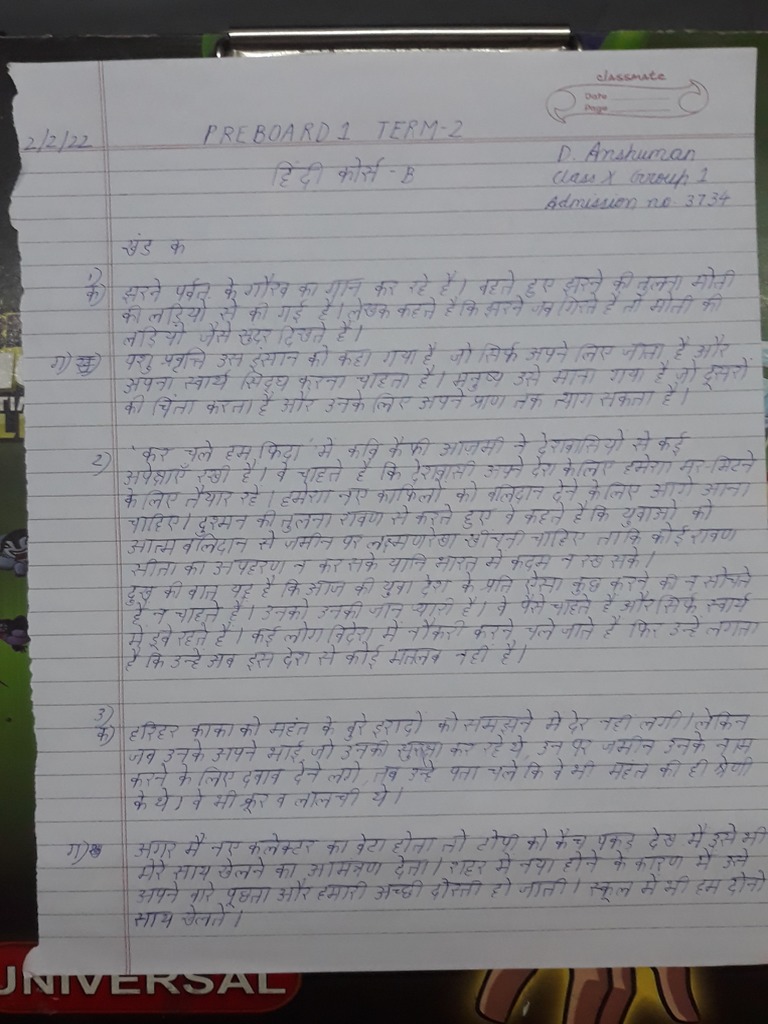 classmate
Date
Page
2/2/22
PREBOARD 1 TERM-2
D. Anshuman
हिंदी कोर्स - B
Class X Group 1
Admission no. 3734
खंड क
1)
क) झरने पर्वत के गौरव का गान कर रहे है। बहते हुए झरने की तुलना मोती
की लड़ियों से की गई है। लेखक कहते है कि झरने जब गिरते है तो मोती की
लड़ियों जैसे सुंदर दिखते है।
ग) पशु प्रवृत्ति उस इंसान को कहा गया है जो सिर्फ अपने लिए जीता है और
अपना स्वार्थ सिद्ध करना चाहता है। मनुष्य उसे माना गया है जो दूसरों
की चिंता करता है और उनके लिए अपने प्राण तक त्याग सकता है।
2) 'कर चले हम फिदा' मे कवि कैफी आजमी ने देशवासियो से कई
अपेक्षाएँ रखी है। वे चाहते है कि देशवासी अपने देश के लिए हमेशा मर-मिटने
के लिए तैयार रहे। हमेशा नए काफिलो को बलिदान देने के लिए आगे आना
चाहिए। दुश्मन की तुलना रावण से करते हुए वे कहते है कि युवाओ को
आत्म बलिदान से जमीन पर लक्ष्मणरेखा खींचनी चाहिए ताकि कोई रावण
सीता का अपहरण न कर सके यानि भारत मे कदम न रख सके।
दुख की बात यह है कि आज की युवा देश के प्रति ऐसा कुछ करने की न सोचते
है न चाहते है। उनको उनकी जान प्यारी है। वे पैसे चाहते है और सिर्फ स्वार्थ
मे डूबे रहते है। कई लोग विदेश में नौकरी करने चले जाते है फिर उन्हे लगता
है कि उन्हे अब इस देश से कोई मतलब नहीं है।
3)
क) हरिहर काका को महंत के बुरे इरादो को समझने मे देर नही लगी। लेकिन
जब उनके अपने भाई जो उनकी सुरक्षा कर रहे थे, उन पर जमीन उनके नाम
करने के लिए दबाव देने लगे, तब उन्हे पता चले कि वे भी महंत की ही श्रेणी
के थे। वे भी क्रूर व लालची थे।
ग) अगर मै नए कलेक्टर का बेटा होता तो टोपी को कैच पकड़ देख मै उसे भी
मेरे साथ खेलने का आमंत्रण देता। शहर मे नया होने के कारण मै उसे
अपने बारे पूछता और हमारी अच्छी दोस्ती हो जाती। स्कूल मे भी हम दोनो
साथ खेलते।
UNIVERSAL